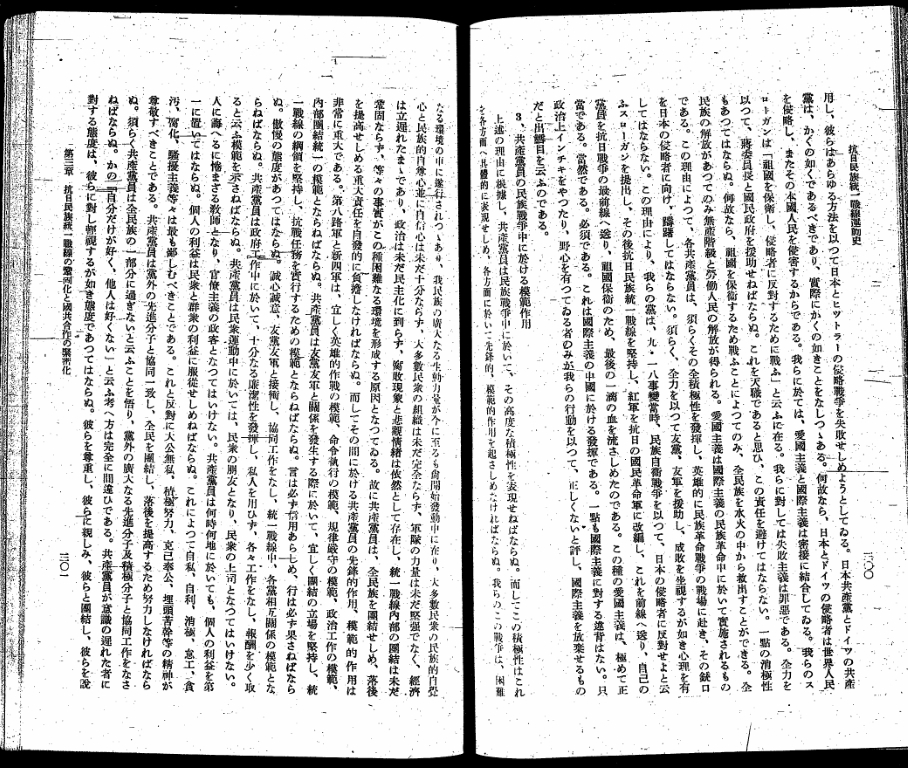 抗日民族統一戰線運動史
二〇〇
用し、彼らはあらゆる方法を以つて日本とヒットラーの侵略戰爭を失敗せしめようとしてゐる。日本共產黨とドイツの共產
黨は、かくの如くであるべきであり、實際にかくの如きことをなしつゝある。何故なら、日本とドイツの侵略者は世界人民
を侵略し、またその本國人民を侵害するからである。我らに於ては、愛國主義と國際主義は密接に結合してゐる。我らのス
ローガンは「祖國を保衛し、侵略者に反對するために戰ふ」と云ふに在る。我らに對しては失敗主義は罪惡である。全力を
以つて、蔣委員長と國民政府を援助せねばならぬ。これを天職であると思ひ、この責任を避けてはならない。一點の消極性
もあつてはならぬ。何故なら、祖國を保衛するため戰ふことによつてのみ、全民族を水火の中から救出すことができる。全
民族の解放があつてのみ無產階級と勞働人民の解放が得られる。愛國主義は國際主義の民族革命中に於いて實施されるもの
である。この理由によつて、各共產黨員は、須らくその全積極性を發揮し、英雄的に民族革命戰爭の戰場に赴き、その銃口
を日本の侵略者に向け、躊躇してはならない。須らく、全力を以つて友黨、友軍を援助し、成敗を坐視するが如き心理を有
してはならない。この理由により、我らの黨は、九・一八事變當時、民族自衛戰爭を以つて、日本の侵略者に反對せよと云
ふスローガンを提出し、その後抗日民族統一戰線を堅持し、紅軍を抗日の國民革命軍に改編し、これを前線へ送り、自己の
黨員を抗日戰爭の最前線へ送り、祖國保衛のため、最後の一滴の血を流さしめたのである。この種の愛國主義は、極めて正
當である。當然である。必須である。これは國際主義の中國に於ける發揮である。一點も國際主義に對する違背はない。只
政治上インチキをやつたり、野心を有つてゐる者のみが我らの行動を以つて、正しくないと評し、國際主義を放棄せるもの
だと出鱈目を云ふのである。
3、共產黨員の民族戰爭中に於ける模範作用
上述の理由に根據し、共產黨員は民族戰爭中に於いて、その高度な積極性を表現せねばならぬ。而してこの積極性はこれ
を各方面へ具體的に表現せしめ、各方面に於いて先鋒的、模範的作用を起さしめなければならぬ。我らのこの戰爭は、困難
なる環境の中に遂行されつゝあり、我民族の廣大なる生動力量が今に至るも尙開始發動中に在り、大多數民衆の民族的自覺
心と民族的自尊心並に自信心は未だ十分ならず、大多數民衆の組織は未だ完全ならず、軍隊の力量は未だ堅强でなく、經濟
は立遅れたまゝであり、政治は未だ民主化に到らず、腐敗現象と悲觀情緖は依然として存在し、統一戰線內部の團結は未だ
鞏固ならず、等々の事實がこの種困難なる環境を形成する原因となつてゐる。故に共產黨員は、全民族を團結せしめ、落後
を提高せしめる重大責任を自發的に負擔しなければならぬ。而してその間に於ける共產黨員の先鋒的作用、模範的作用は
非常に重大である。第八路軍と新四軍は、宜しく英雄的作戰の模範、命令執行の模範、規律嚴守の模範、政治工作の模範、
內部團結統一の模範とならねばならぬ。共產黨員は友黨友軍と關係を發生する際に於いて、宜しく團結の立場を堅持し、統
一戰線の綱領を堅持し、抗戰任務を實行するための模範とならねばならぬ。言は必ず信用あらしめ、行は必ず果さねばなら
ぬ。傲慢の態度があつてはならぬ。誠心誠意、友黨友軍と接衝し、協同工作をなし、統一戰線中、各黨相互關係の模範とな
らねばならぬ。共產黨員は政府工作中に於いて、十分なる廉潔性を發揮し、私人を用ひず、各々工作をなし、報酬を少く取
ると云ふ模範を示さねばならぬ。共產黨員は民衆運動中に於いては、民衆の朋友となり、民衆の上司となつてはいけない。
人に誨へるに惓まざる敎師となり、官僚主義の政客となつてはいけない。共產黨員は何時何地に於いても、個人の利益を第
一に置いてはならぬ。個人の利益は民衆と群衆の利益に服從せしめねばならぬ。これによつて自私、自利、消極、怠工、貪
汚、腐化、騷擾主義等々は最も鄙しむべきことである。これと反對に大公無私、積極努力、克己奉公、埋頭苦幹等の精神が
尊敬すべきことである。共產黨員は黨外の先進分子と協同一致し、全民を團結し、落後を提高するため努力しなければなら
ぬ。須らく共產黨員は全民族の一部分に過ぎないと云ふことを悟り、黨外の廣大なる先進分子及積極分子と協同工作をなさ
ねばならぬ。かの「自分だけが好く、他人は好くない」と云ふ考へ方は完全に間違ひである。共產黨員が意識の遅れた者に
對する態度は、彼らに對し輕視するが如き態度であつてはならぬ。彼らを尊重し、彼らに親しみ、彼らと團結し、彼らを說
第三章 抗日民族統一戰線の鞏固化と國共合作の緊密化
二〇一